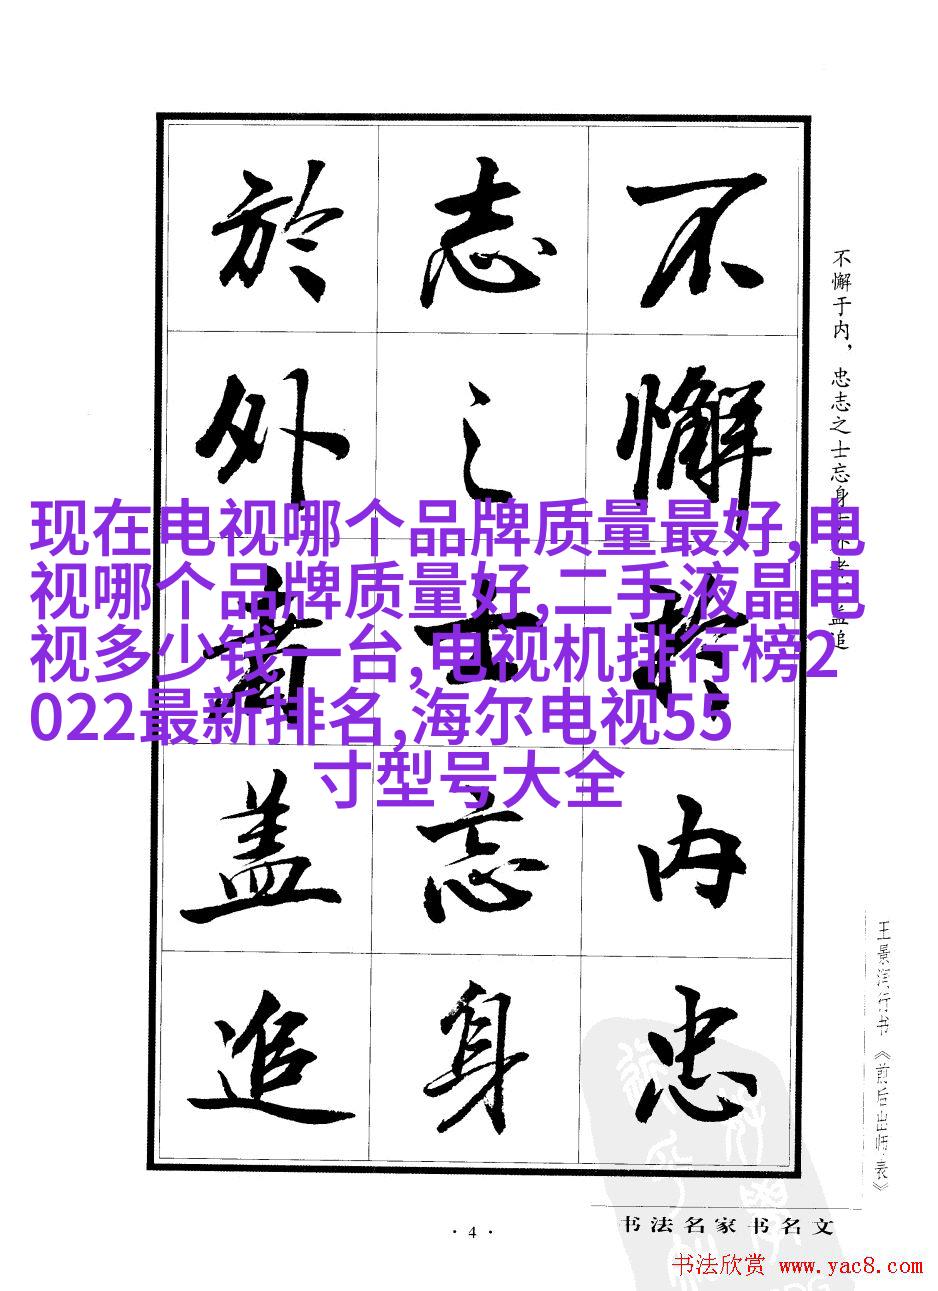 不懈于内，忠志之士忘身于外者，盖追
不懈於内忠
志之士忘身
於外者盖追
现在电视哪个品牌质量最好,电
视哪个品牌质量好,二手液晶电
视多少钱一台,电视机排行榜2
022最新排名,海尔电视55
寸型号大全
王景行书《前后出师表》
书法名家书名文
·4·
书法欣赏 www.yac8.com